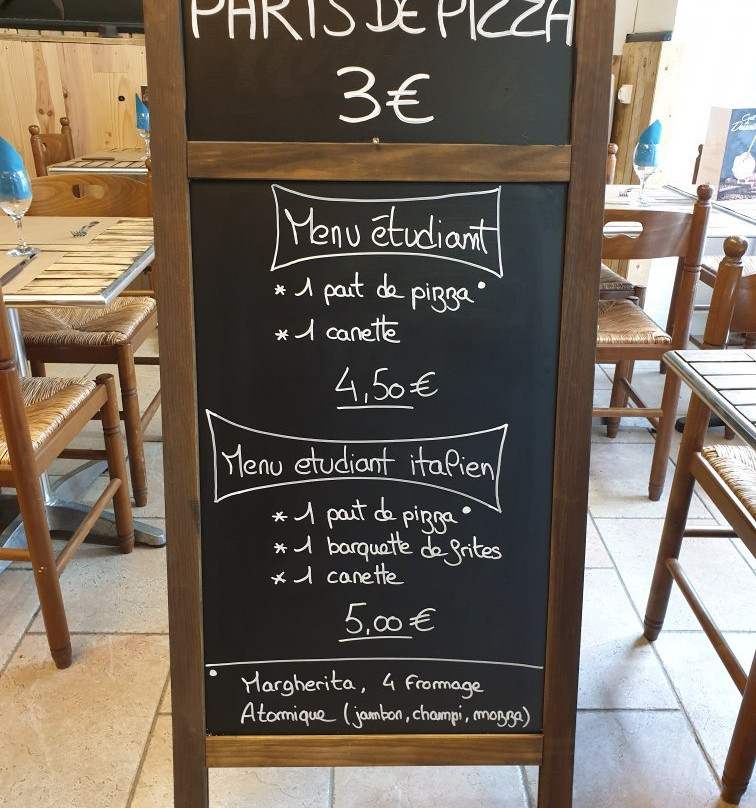 PARTS DE PIZZA
3€
Menu étudiant
* 1 part de pizza •
* 1 canette
4,50 €
Menu etudiant italien
* 1 part de pizza •
* 1 barquette de frites
* 1 canette
5,00 €
• Margherita, 4 Fromage
Atomique (jambon, champi, mozza)